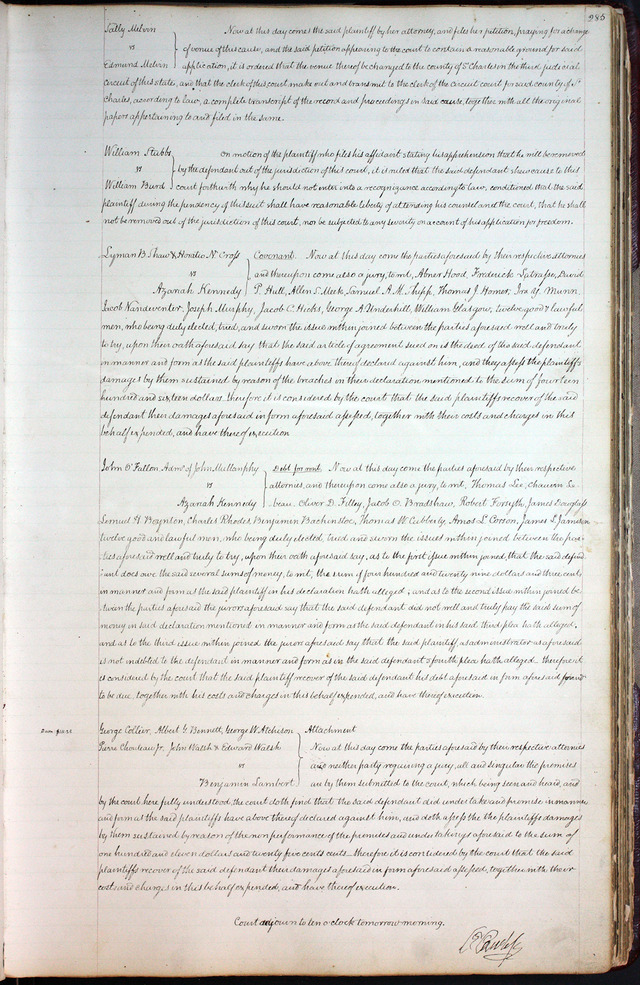 285
Sally Melvin Now at this day comes the said plaintiff by her attorney, and files her petition, praying for a change
vs of venue of this cause, and the said petition appearing to the court to contain a reasonable ground for said
Edmund Melvin application, it is ordered that the venue thereof be changed to the county of St Charles in the third judicial
circuit of this state, and that the clerk of this court make out and transmit to the clerk of the circuit court for said county of St
Charles, according to law, a complete transcript of the record and proceedings in said cause, together with all the original
papers appertaining to and filed in the same.
William Stubbs on motion of the plaintiff who files his affidavit stating his apprehension that he will be removed
vs by the defendant out of the jurisdiction of this court, it is ruled that the said defendant show cause to this
William Burd court forthwith why he should not enter into a recognizance according to law, conditioned that the said
plaintiff during the pendency of this suit shall have reasonable liberty of attending his counsel and the court, that he shall
not be removed out of the jurisdiction of this court, nor be subjected to any severity on account of his application for freedom.
Lyman B. Shaw & Horatio N. Cross Covenant. Now at this day come the parties aforesaid by their respective attornies
vs and thereupon come also a jury, to wit, Abner Hood, Frederick David
Azariah Kennedy P. Hull, Allen S. Meek, Samuel A. M. Shipp, Thomas J. Homer, Ira Munn,
Jacob Vandeventer, Joseph Murphy, Jacob C. Hicks, George A. Underhill, William Glasgow, twelve good & lawful
men, who being duly elected, tried, and sworn the issue within joined between the parties aforesaid well and truly
to try, upon their oath aforesaid say that the said article of agreement sued on is the deed of the said defendant
in manner and form as the said plaintiffs have above thereof declared against him, and they assess the plaintiffs
damages by them sustained by reason of the breaches in their declaration mentioned to the sum of fourteen
hundred and sixteen dollars. therefore it is considered by the court that the said plaintiffs recover of the said
defendant their damages aforesaid in form aforesaid assessed, together with their costs and charges in this
behalf expended, and have thereof execution
John O'Fallon Admr. of John Mullanphy Debt for rent. Now at this day come the parties aforesaid by their respective
vs attornies, and thereupon come also a jury, to wit, Thomas Lee, Chauvin Le
Azariah Kennedy beau, Oliver D. Filley, Jacob O. Bradshaw, Robert Forsyth, James Douglass
Lemuel G. Boynton, Charles Rhodes, Benjamin Backenstoe, Thomas W. Cubberly, Amos L. Corson, James L. Jameson
twelve good and lawful men, who being duly elected, tried and sworn the issues within joined between the par
ties aforesaid well and truly to try, upon their oath aforesaid say, as to the first issue within joined, that the said defend
ant does owe the said several sums of money, to wit, the sum of four hundred and twenty nine dollars and three cents,
in manner and form as the said plaintiff in his declaration hath alleged; and as to the second issue within joined be
tween the parties aforesaid the jurors aforesaid say that the said defendant did not well and truly pay the said sum of
money in said declaration mentioned in manner and form as the said defendant in his said third plea hath alleged;
and as to the third issue within joined the jurors aforesaid say that the said plaintiff as administrator as aforesaid
is not indebted to the defendant in manner and form as in the said defendants fourth plea hath alleged. therefore it
is considered by the court that the said plaintiff recover of the said defendant his debt aforesaid in form aforesaid found
to be due, together with his costs and charges in this behalf expended, and have thereof execution.
George Collier, Albert G. Bennett, George W. Atchison Attachment
Pierre Chouteau Jr. John Walsh & Edward Walsh Now at this day come the parties aforesaid by their respective attornies
vs and neither party requiring a jury, all and singular the premises
Benjamin Lambert are by them submitted to the court, which being seen and heard, and
by the court here fully understood, the court doth find that the said defendant did undertake and promise in manner
and form as the said plaintiffs have above thereof declared against him, and doth assess the plaintiffs damages
by them sustained by reason of the nonperformance of the promises and undertakings aforesaid to the sum of
one hundred and eleven dollars and twenty five cents cents. therefore it is considered by the court that the said
plaintiffs recover of the said defendant their damages aforesaid in form aforesaid assessed, together with their
costs and charges in this behalf expended, and have thereof execution.
Court adjourn to ten o'clock tomorrow morning.